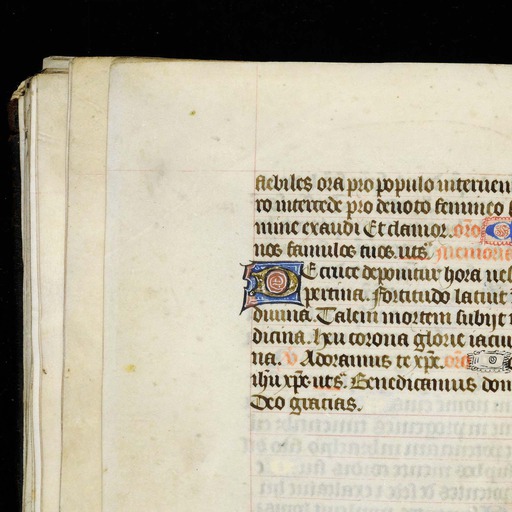 flebiles ora pro populo interueni
ro intercede pro deuoto femineo
mine exaudi Et clamor. oro
nos famulos tuos. uts. memoria
DE cruce deponitur hora ues
pertina. fortitudo latuit
diuina. Talem mortem subijt
dicina. hxu corona glorie iacu
na. v Adoramus te xpe. oro
ihu xpe uts. Benedicamus dom
Deo gracias.